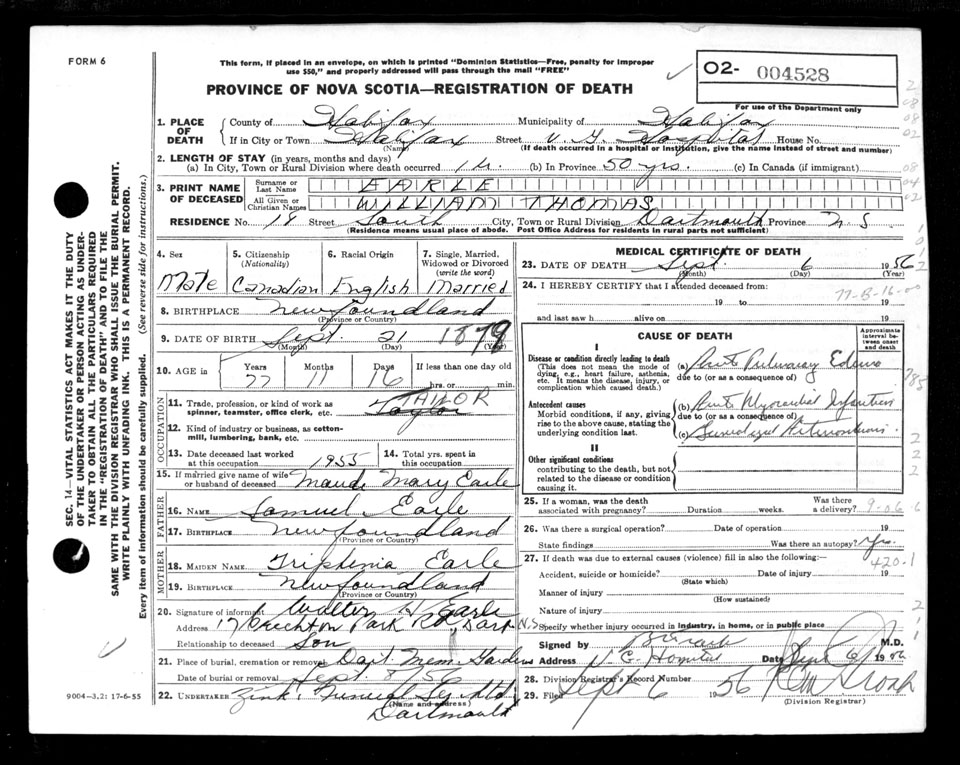 FORM 6
This form, if placed in an envelope, on which is printed "Dominion Statistics—Free, penalty for improper
use $50," and properly addressed will pass through the mail "FREE"
O2- 004528
For use of the Department only
PROVINCE OF NOVA SCOTIA—REGISTRATION OF DEATH
1. PLACE OF DEATH
County of Halifax Municipality of Halifax
If in City or Town Halifax Street V. G. Hospital House No.
(Name) (If death occurred in a hospital or institution, give the name instead of street and number)
2. LENGTH OF STAY (in years, months and days)
(a) In City, Town or Rural Division where death occurred (b) In Province 50 yrs. (c) In Canada (if immigrant)
3. PRINT NAME OF DECEASED
Surname or Last Name EARLE
All Given or Christian Names WILLIAM THOMAS
RESIDENCE No. Street South City, Town or Rural Division Dartmouth Province N.S.
(Residence means usual place of abode. Post Office Address for residents in rural parts not sufficient)
4. Sex Male
5. Citizenship (Nationality) Canadian
6. Racial Origin English
7. Single, Married, Widowed or Divorced (write the word) Married
8. BIRTHPLACE Newfoundland
(Province or Country)
9. DATE OF BIRTH Sept. 21 1879
(Month) (Day) (Year)
10. AGE in Years 77 Months 11 Days 16 If less than one day hrs. or min.
OCCUPATION
11. Trade, profession, or kind of work as spinner, teamster, office clerk, etc. TAILOR
12. Kind of industry or business, as cotton-mill, lumbering, bank, etc.
13. Date deceased last worked at this occupation 1955
14. Total yrs. spent in this occupation
15. If married give name of wife or husband of deceased Maude Mary Earle
FATHER
16. Name Samuel Earle
17. Birthplace Newfoundland
(Province or Country)
MOTHER
18. Maiden Name Triphinia Earle
19. Birthplace Newfoundland
(Province or Country)
20. Signature of informant Walter H Earle
Address 17 Brechton Park Rd., Dart. N.S.
Relationship to deceased Son
21. Place of burial, cremation or removal Dart. Mem. Gardens
Date of burial or removal Sept. 8/56
22. UNDERTAKER Zink Funeral Ser. Ltd
(Name and address)
Dartmouth
MEDICAL CERTIFICATE OF DEATH
23. DATE OF DEATH Sept. 6 1956
(Month) (Day) (Year)
24. I HEREBY CERTIFY that I attended deceased from:
19 to 19
77-B-16-00
and last saw h alive on 19
CAUSE OF DEATH
Approximate interval between onset and death
I
Disease or condition directly leading to death
(This does not mean the mode of dying, e.g., heart failure, asthenia, etc. It means the disease, injury, or complication which caused death.)
(a) Acute Pulmonary Edema
due to (or as a consequence of)
Antecedent causes
Morbid conditions, if any, giving rise to the above cause, stating the underlying condition last.
(b) Acute Myocardial Infarction
due to (or as a consequence of)
(c) Generalized Arteriosclerosis.
785
II
Other significant conditions
contributing to the death, but not related to the disease or condition causing it.
25. If a woman, was the death associated with pregnancy? Duration weeks. Was there a delivery?
26. Was there a surgical operation? Date of operation 19
State findings Was there an autopsy? Yes.
420.1
27. If death was due to external causes (violence) fill in also the following:—
Accident, suicide or homicide? Date of injury 19
(State which)
Manner of injury
(How sustained)
Nature of injury
Specify whether injury occurred in industry, in home, or in public place
Signed by M.D.
Address V. G. Hospital Date Sept 6 1956
28. Division Registrar's Record Number
29. Filed Sept 6 1956
(Division Registrar)
SEC. 14—VITAL STATISTICS ACT MAKES IT THE DUTY
OF THE UNDERTAKER OR PERSON ACTING AS UNDER-
TAKER TO OBTAIN ALL THE PARTICULARS REQUIRED
IN THE "REGISTRATION OF DEATH" AND TO FILE THE
SAME WITH THE DIVISION REGISTRAR WHO SHALL ISSUE THE BURIAL PERMIT.
WRITE PLAINLY WITH UNFADING INK. THIS IS A PERMANENT RECORD.
Every item of information should be carefully supplied. (See reverse side for instructions.)
9004—3.2: 17-6-55